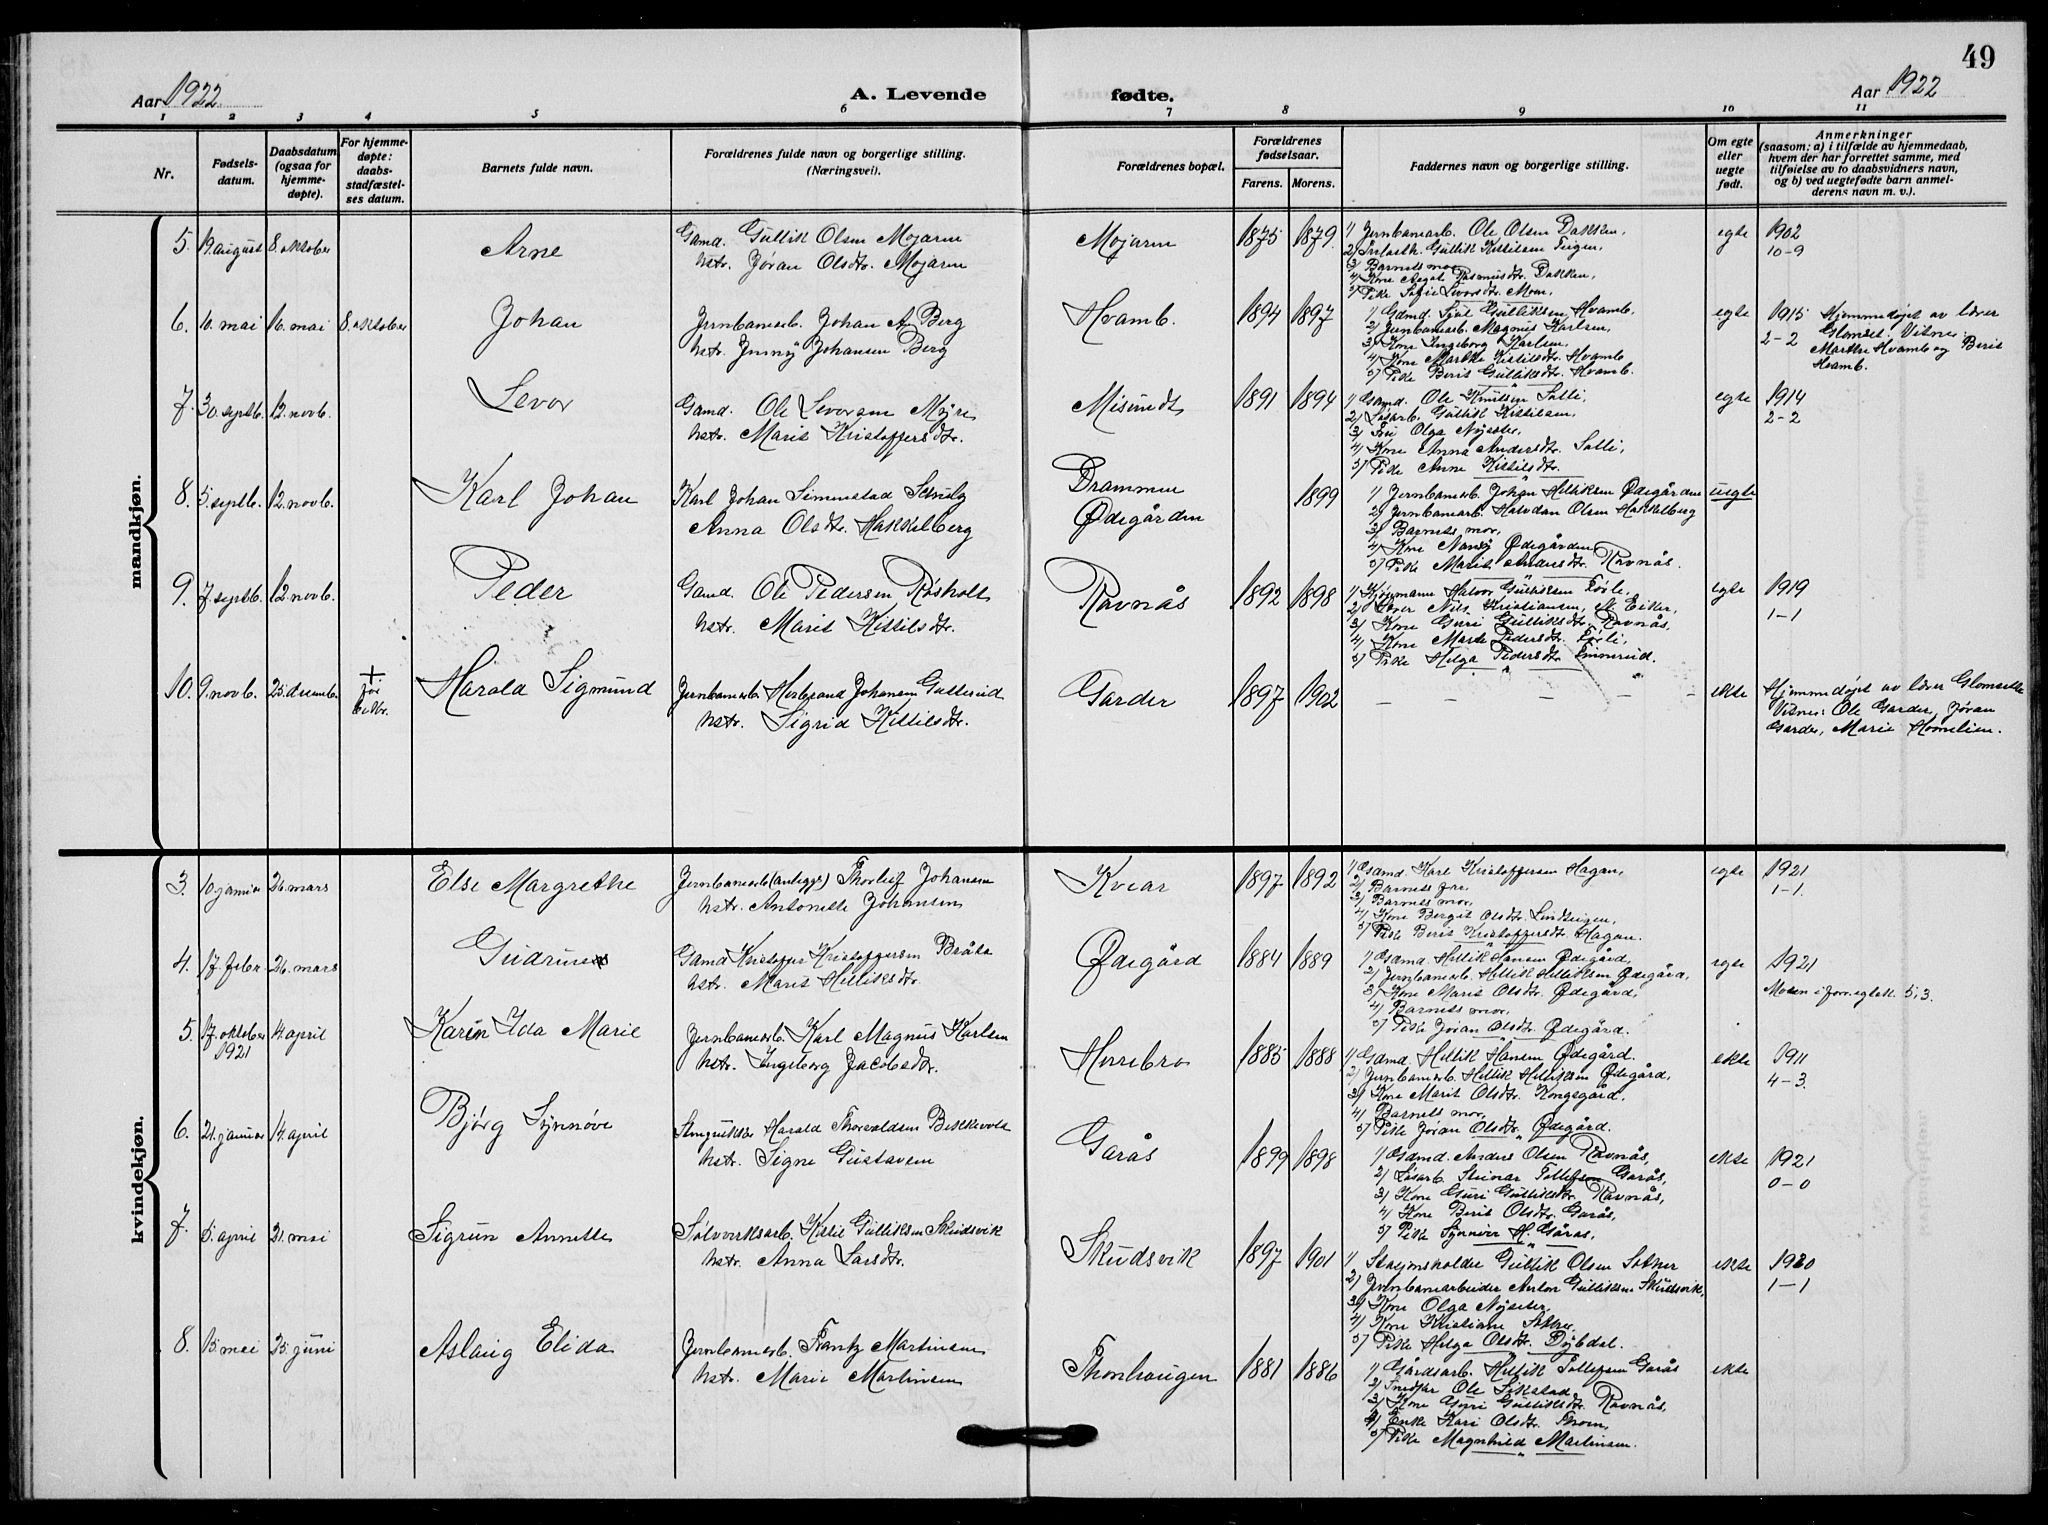 49
Aar 1922
A. Levende
fødte.
Aar 1922
1 2 3 4 5 6 7 8 9 10 11
Nr.
Fødsels-
datum.
Daabsdatum
(ogsaa for
hjemme-
døpte).
For hjemme-
døpte:
daabs-
stadfæstel-
ses datum.
Barnets fulde navn.
Forældrenes fulde navn og borgerlige stilling.
(Næringsvei).
Forældrenes bopæl.
Forældrenes
fødselsaar.
Farens. Morens.
Faddernes navn og borgerlige stilling.
Om egte
eller
uegte
født.
Anmerkninger
(saasom: a) i tilfælde av hjemmedaab,
hvem der har forrettet samme, med
tilføielse av to daabsvidners navn,
og b) ved uegtefødte barn anmel-
derens navn m. v.).
mandkjøn.
5. 19. august 8. oktober Arne
Gamd. Gullik Olsen Mojaren
hstr. Jøran Olsdtr. Mojaren
Mojaren 1875 1879
1) Jernbanearb. Ole Olsen Bakken,
2) Gullik Kittilsen Teigen,
3) Barnets mor,
4) Kone Aagot Rasmusdtr. Bakken,
5) Pike Sofie Levorsdtr. Moen.
egte 1902
10-9
6. 10. mai 16. mai 8. oktober Johan
Jernbanearb. Johan A. Berg
hstr. Jenny Johansen Berg
Hvamb. 1894 1897
1) Gdmd. Sjul Gulliksen Hvamb.
2) Jernbanearb. Magnus Karlsen,
3) Kone Ingeborg Karlsen,
4) Kone Marthe Kittilsdtr. Hvamb
5) Pike Berit Gulliksdtr. Hvamb.
egte 1915
2-2
Hjemmedøpt av lærer
Glomset. Vitner:
Marthe Hvamb og Berit
Hvamb.
7. 30. septb. 12. novb. Levor
Gamd. Ole Levorsen Myre
hstr. Marit Kristoffersdtr.
Misundt 1891 1894
1) Gamd. Ole Knutsen Solli,
2) Løsarb. Gullik Kittilsen,
3) Fru Olga Nyseter,
4) Kone Anna Andersdtr. Solli,
5) Pike Anne Kittilsdtr.
egte 1914
2-2
8. 5. septb. 12. novb. Karl Johan
Karl Johan Simenstad Schulz
Anna Olsdtr. Hakkelberg
Drammen
Ødegården
1899
1) Jernbanearb. Johan Helliksen Ødegården
2) Jernbanearb. Halvdan Olsen Hakkelberg
3) Barnets mor,
4) Kone Nanny Ødegården
5) Pike Marit Andersdtr. Ravnås.
uegte
9. 7. septb. 12. novb. Peder
Gamd. Ole Pedersen Røsholt
hstr. Marit Kittilsdtr.
Ravnås 1892 1898
1) Kjøpmann Halvor GulliksenFørli,
2) Lærer Nils Kristiansen, N. Eiker,
3) Kone Guri Gulliksdtr. Ravnås,
4) Kone Marte Pedersdtr. Førli,
5) Pike Helga Pedersdtr.
egte 1919
1-1
10. 9. novb. 25. decemb. + før
Harald Sigmund
Jernbanearb. Herbrand Johansen Gullerud
hstr. Sigrid Kittilsdtr.
Garder 1897 1902
– – – – –
ekte
Hjemmedøpt av lærer Glomsett.
Vitner: Ole Garder, Jøran
Garder, Marie Homelien.
kvindekjøn.
3. 10. januar 26. mars Else Margrethe
Jernbanearb. (anlegg) Thorleif Johansen
hstr. Antonette Johansen
Kvear 1897 1892
1) Gdmd. Karl Kristoffersen Hagan,
2) Barnets far,
3) Barnets mor,
4) Kone Bergit Olsdtr. Lindteigen,
5) Pike Berit Kristoffersdtr. Hagan.
egte 1921
1-1.
4. 17. febr. 26. mars Gudrun
Gamd Kristoffer Kristoffersen Bråta
hstr. Marit Helliksdtr.
Ødegård 1884 1889
1) Gdmd. Hellik Hansen Ødegård,
2) Jernbanearb. Hellik Helliksen Ødegård,
3) Kone Marit Olsdtr. Ødegård,
4) Barnets mor,
5) Pike Jøran Olsdtr. Ødegård.
egte 1921
Moren i forr. egtsk. 5,3.
5. 17. oktober
1921 4. april Karin Ida Marie
Jernbanearb. Karl Magnus Karlsen
hstr. Ingeborg Jacobsdtr.
Horrebro 1885 1888
1) Gdmd. Hellik Hansen Ødegård.
2) Jernbanearb. Hellik Helliksen Ødegård,
3) Kone Marit Olsdtr. Kongsgård,
4) Barnets mor,
5) Pike Jøran Olsdtr. Ødegård.
ekte 1911
4-3.
6. 21. januar 14. april Bjørg Synnøve
Harald Thorvaldsen Bekkevold
hstr. Signe Gustavsen
Garås 1899 1898
1) Gdmd. Anders Olsen Ravnås,
2) Løsarb. Steinar Tollefsen Garås,
3) Kone Guri Gulliksdtr. Ravnås,
4) Kone Berit Olsdtr. Garås,
5) Pike Synnøve H. Garås.
ekte 1921
0-0
7. 5. april 21. mai Sigrun Annette
Sølvverksarb. Kittil Gulliksen Skudsvik
hstr. Anna Larsdtr.
Skudsvik 1897 1901
1) Stasjonsholder Gullik Olsen Sæther
2) Jernbanearbeider Anton Gulliksen Skudsvik,
3) Kone Olga Nyseter,
4) Kone Kristiane Sæther,
5) Pike Helga Olsdtr. Dybdal.
ekte 1920
1-1
8. 15. mai 25. juni Aslaug Elida
Jernbanearb. Frantz Martinsen
hstr. Marie Martinsen
Thonhaugen 1881 1886
1) Gårdsarb. Hellik Tollefsen Garås
2) Snedker Ole
3) Kone Guri Gulliksdtr. Ravnås,
4) Enke Kari Olsdtr. Thoen,
5) Pike Magnhild Martinsen.
ekte